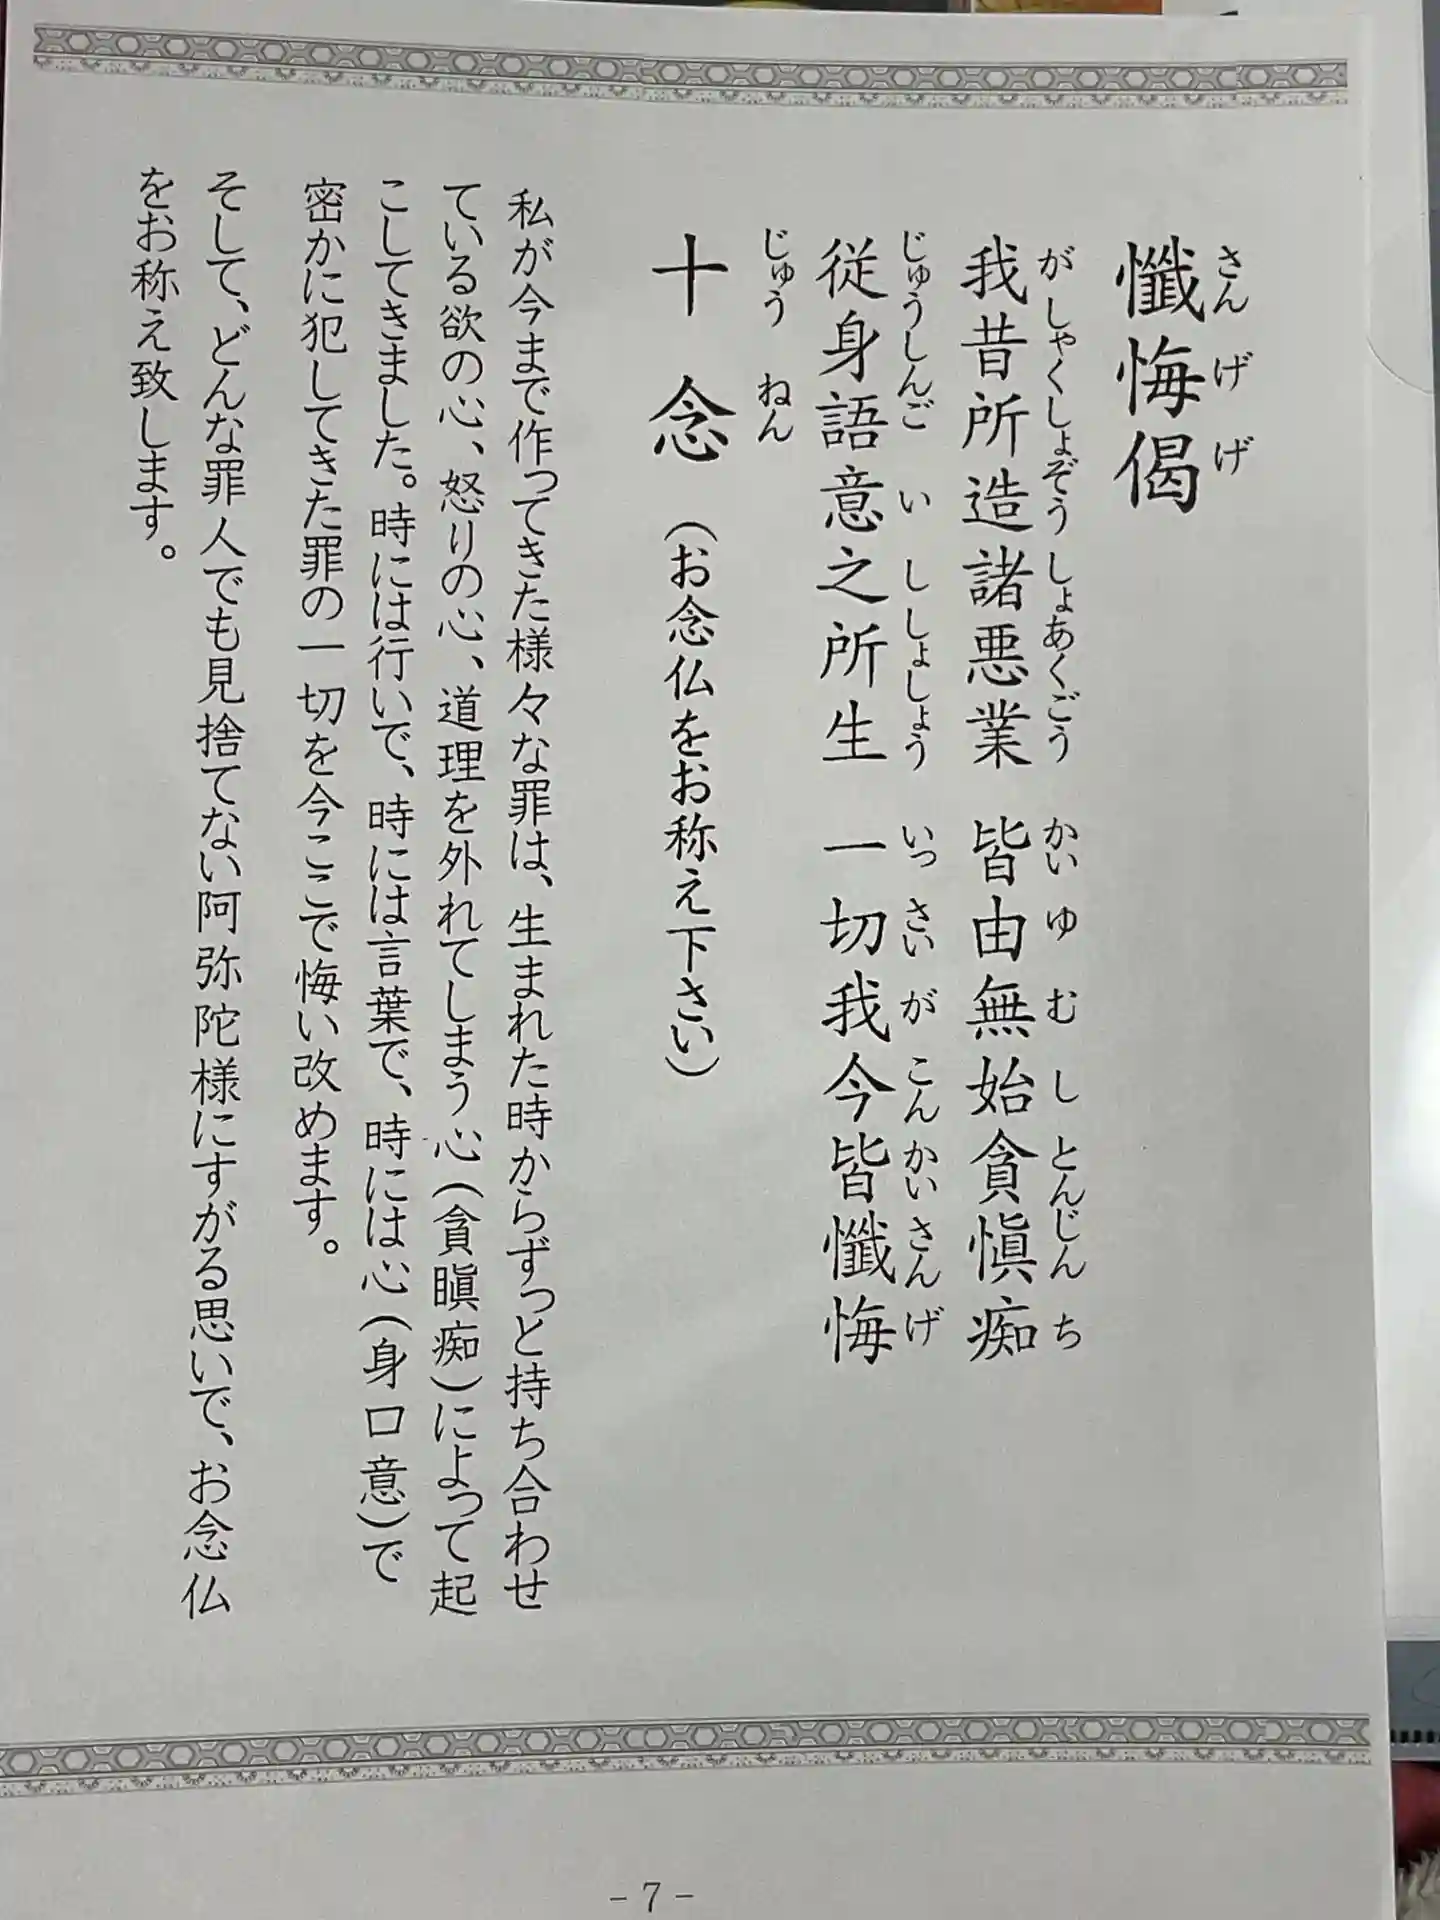 懺悔偈
さんげげ
我昔所造諸悪業 皆由無始貪愼痴
がしゃくしょぞうしょあくごう かいゆむしとんじんち
従身語意之所生 一切我今皆懺悔
じゅうしんごいししょしょう いっさいがこんかいさんげ
十念 (お念仏をお称え下さい)
じゅうねん
私が今まで作ってきた様々な罪は、生まれた時からずっと持ち合わせ
ている欲の心、怒りの心、道理を外れてしまう心(貪瞋痴)によって起
こしてきました。時には行いで、時には言葉で、時には心(身口意)で
密かに犯してきた罪の一切を今ここで悔い改めます。
そして、どんな罪人でも見捨てない阿弥陀様にすがる思いで、お念仏
をお称え致します。
- 7 -